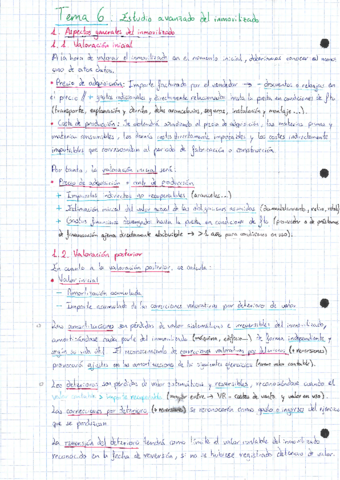 Tema 6. Estudio avanzado del inmovilizado
1. Aspectos generales del inmovilizado
1.1. Valoración inicial
A la hora de valorar el inmovilizado en el momento inicial, deberemos conocer al menos
uno de estos datos.
• Precio de adquisición: Importe facturado por el vendedor → - descuentos o rebajas en
el precio // + gastos adicionales y directamente relacionados hasta la puesta en condiciones de fto
(transporte, explanación y derribo, dchos arancelarios, seguros, instalación y montaje...).
• Coste de producción: Se obtendrá añadiendo al precio de adquisición, las materias primas y
materias consumibles, los demás costes directamente imputables, y los costes indirectamente
imputables que correspondan al periodo de fabricación o construcción.
Por tanto, la valoración inicial será:
• Precio de adquisición o coste de producción
+ Impuestos indirectos no recuperables (aranceles...)
+ Estimación inicial del valor actual de las obligaciones asumidas (desmantelamiento, retiro, rehab)
+ Gastos financieros devengados hasta la puesta en condiciones de fto (proveedor o de préstamos
de financiación ajena directamente atribuible → > 1 año para condiciones en uso).
1.2. Valoración posterior
En cuanto a la valoración posterior, se calcula:
• Valor inicial
- Amortización acumulada
- Importe acumulado de las correcciones valorativas por deterioro de valor
Las amortizaciones son pérdidas de valor sistemáticas e irreversibles del inmovilizado,
amortizándose cada parte del inmovilizado (máquina, edificio...) de forma independiente, y
según su vida útil. El reconocimiento de correcciones valorativas por deterioro (+ reversiones)
provocará ajustes en las amortizaciones de los siguientes ejercicios (nuevo valor contable).
Los deterioros son pérdidas de valor sistemáticas y reversibles, reconociéndose cuando el
valor contable > importe recuperable (mayor entre → VR - costes de venta y valor en uso).
Las correcciones por deterioro (+ reversiones) se reconocerán como gasto o ingreso del ejercicio
que se produzcan.
La reversión del deterioro tendrá como límite el valor contable del inmovilizado
reconocido en la fecha de reversión, si no se hubiese registrado deterioro de valor.